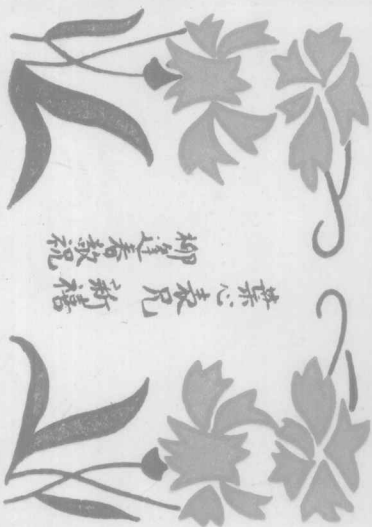 葉心表兄 新禧
柳逢春敬祝